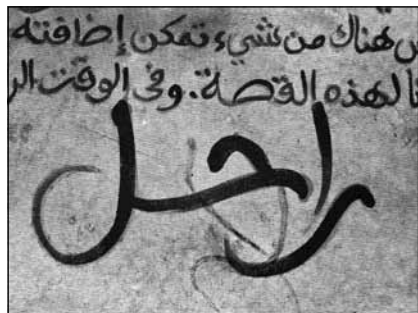 هناك من شيء تمكن إضافته
لهذه القصة. وفي الوقت
راحل